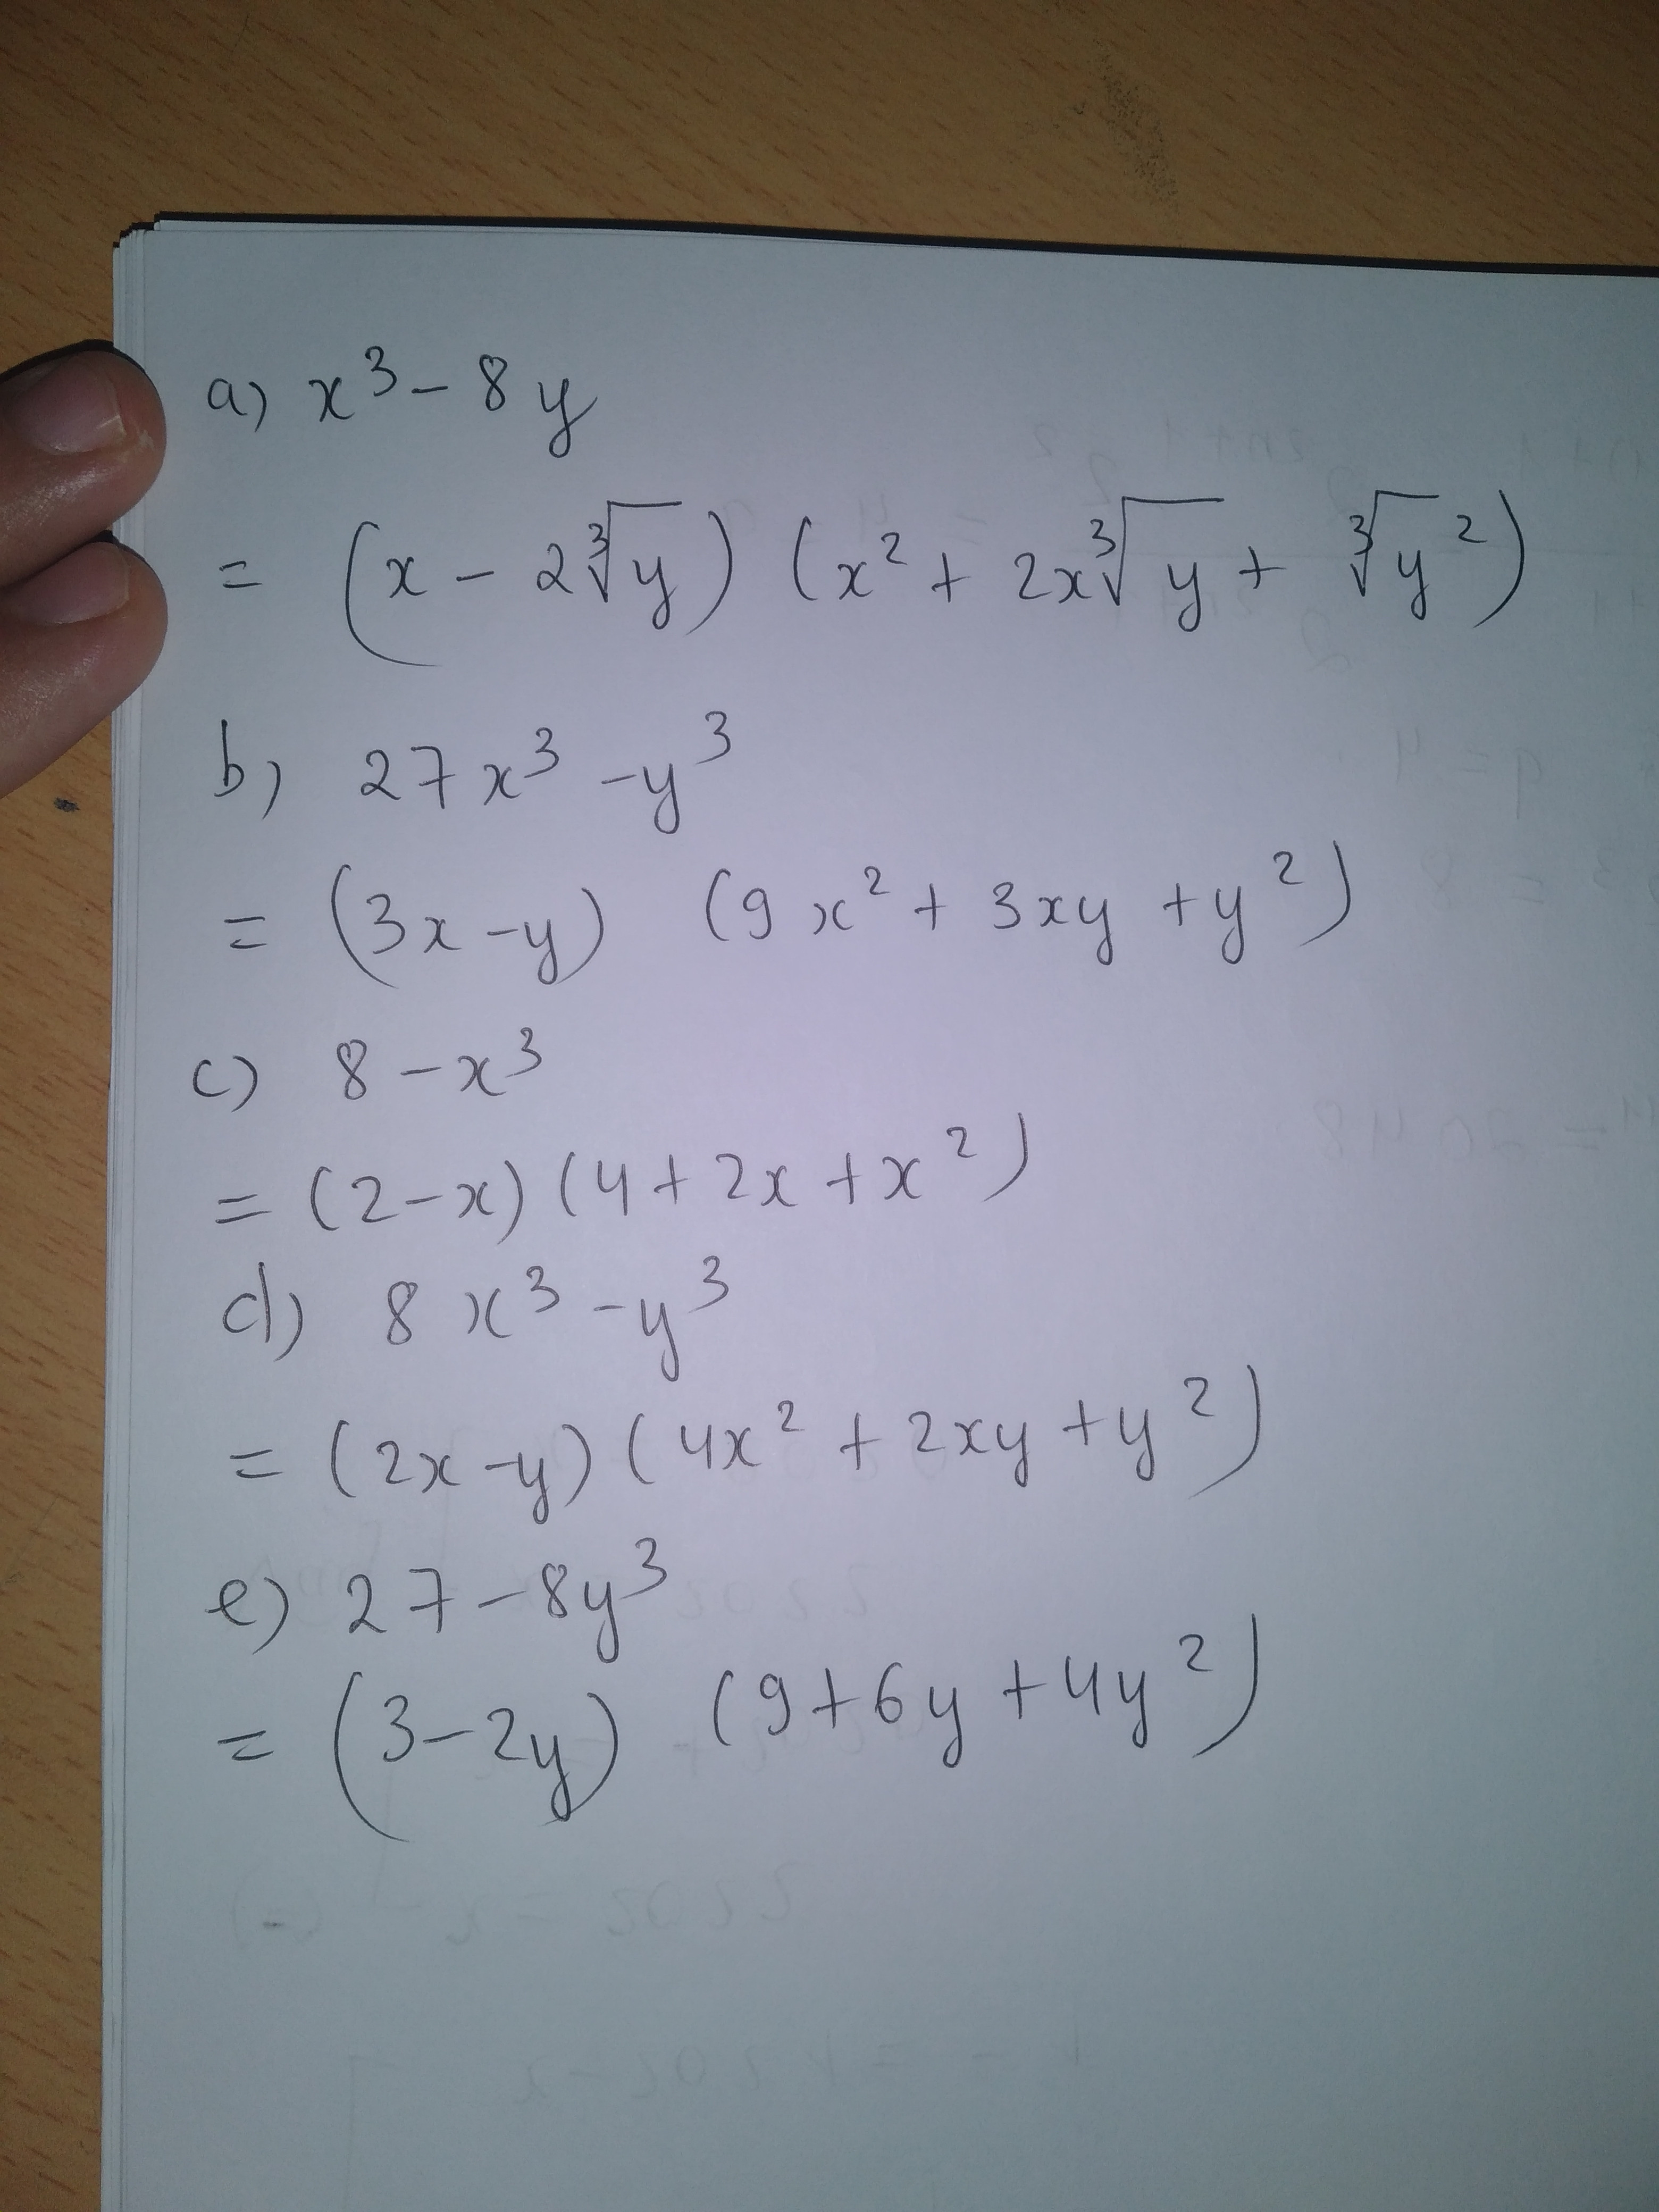 a) x³ - 8y
= (x - 2∛y) (x² + 2x∛y + ∛y²)
b) 27x³ - y³
= (3x - y) (9x² + 3xy + y²)
c) 8 - x³
= (2 - x) (4 + 2x + x²)
d) 8x³ - y³
= (2x - y) (4x² + 2xy + y²)
e) 27 - 8y³
= (3 - 2y) (9 + 6y + 4y²)